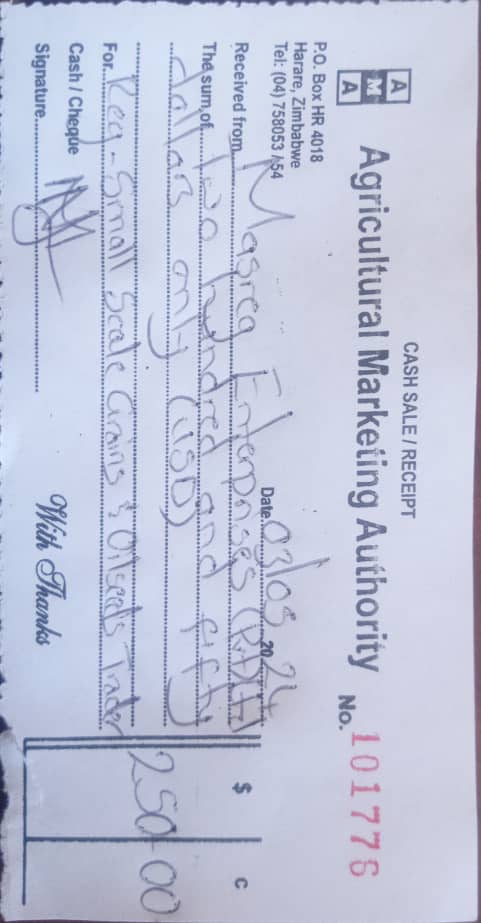 CASH SALE / RECEIPT
AMA Agricultural Marketing Authority No. 101776
P.O. Box HR 4018
Harare, Zimbabwe
Tel: (04) 758053 / 54
Date 03/05 2024
Received from Masreg Enterprises (Pvt) Ltd
The sum of Two hundred and fifty
dollars only (USD)
For Reg - Small Scale Grains & Oilseeds Trader
$ c
250 00
Cash / Cheque
Signature
With Thanks